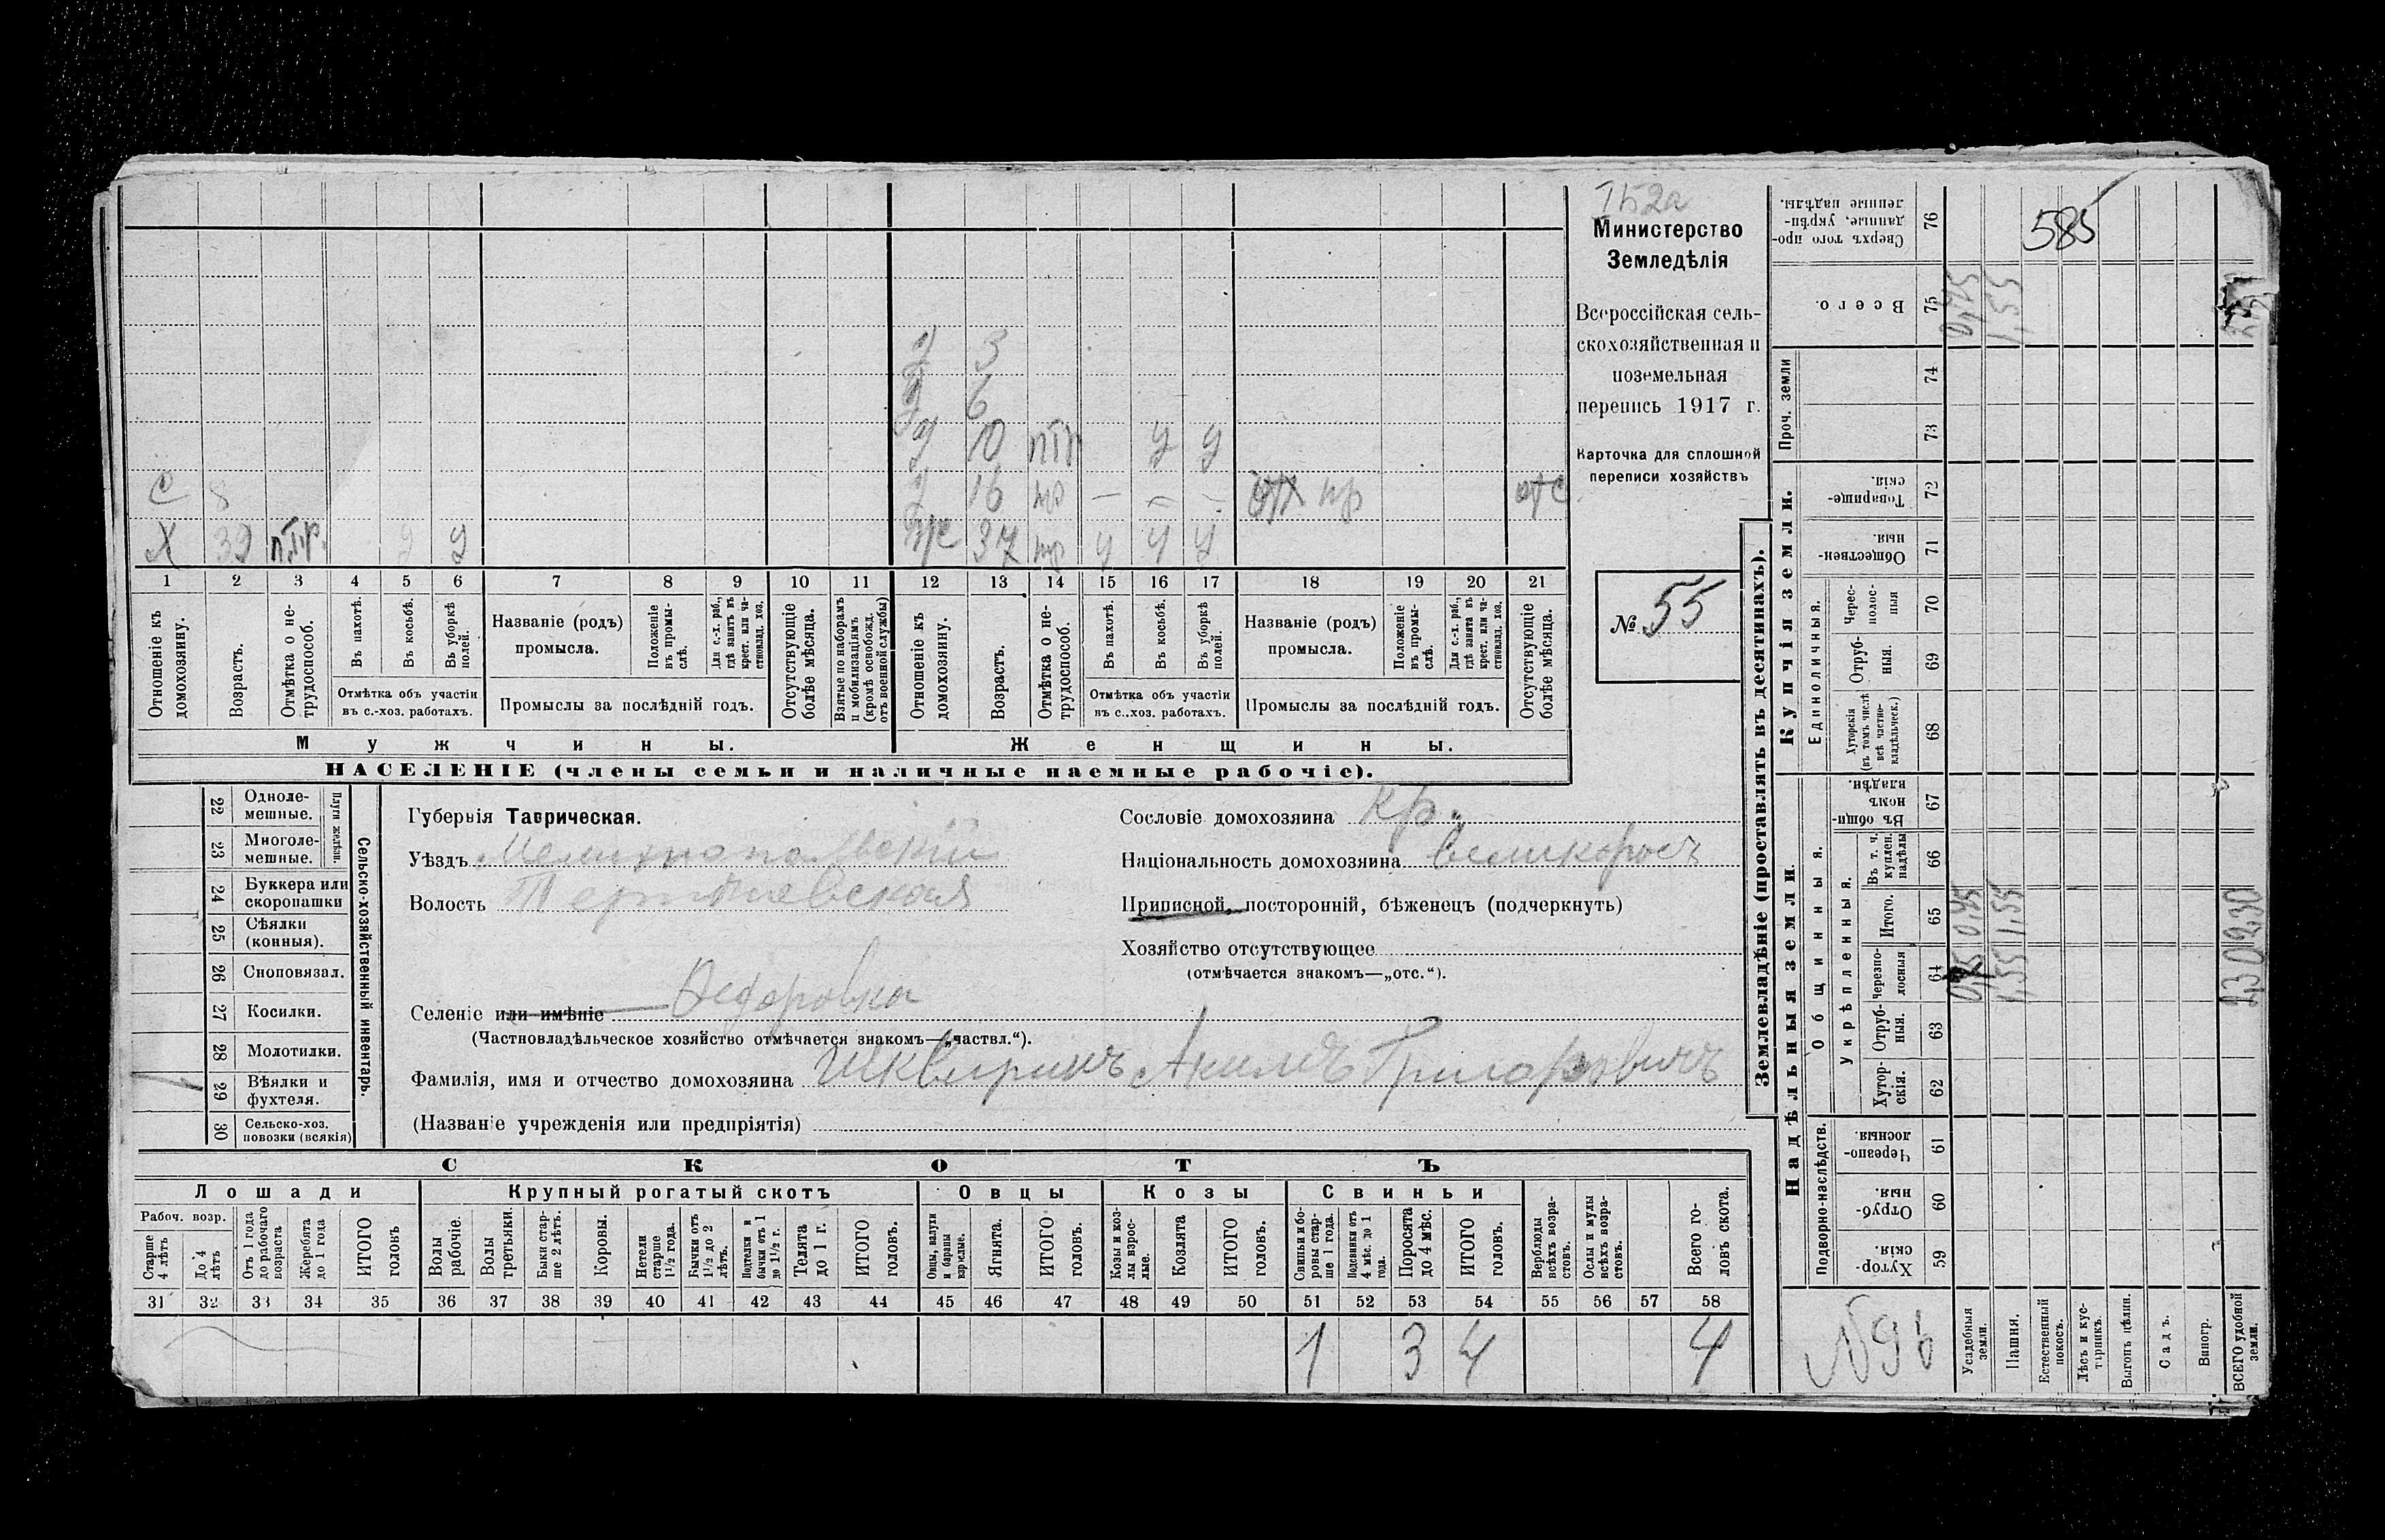 Министерство
Земледѣлія
Всероссійская сель-
скохозяйственная и
поземельная
перепись 1917 г.
Карточка для сплошной
переписи хозяйствъ
№ 55
3
6
10 птр у у
16 нр — — — нр отс
37 нр у у у
С 8
Х 39 п.тр. у у
1 2 3 4 5 6 7 8 9 10 11 12 13 14 15 16 17 18 19 20 21
Отношеніе къ домохозяину.
Возрастъ.
Отмѣтка о не-трудоспособ.
Въ пахотѣ.
Въ косьбѣ.
Въ уборкѣ полей.
Отмѣтка объ участіи въ с.-хоз. работахъ.
Названіе (родъ) промысла.
Положеніе въ промы-слѣ.
Для с.-х. раб., гдѣ занятъ въ крест. или ча-стновлад. хоз.
Промыслы за послѣдній годъ.
Отсутствующіе болѣе мѣсяца.
Взятые по наборамъ и мобилизаціямъ (кромѣ освобожд. отъ военной службы)
Отношеніе къ домохозяину.
Возрастъ.
Отмѣтка о не-трудоспособ.
Въ пахотѣ.
Въ косьбѣ.
Въ уборкѣ полей.
Отмѣтка объ участіи въ с..хоз. работахъ.
Названіе (родъ) промысла.
Положеніе въ промы-слѣ.
Для с.-х. раб., гдѣ занята въ крест. или ча-стновлад. хоз.
Промыслы за послѣдній годъ.
Отсутствующіе болѣе мѣсяца.
Мужчины.
Женщины.
НАСЕЛЕНІЕ (члены семьи и наличные наемные рабочіе).
Сельско-хозяйственный инвентарь.
Плуги желѣзн.
22 Одноле-мешные.
23 Многоле-мешные.
24 Буккера или скоропашки
25 Сѣялки (конныя).
26 Сноповязал.
27 Косилки.
28 Молотилки.
29 Вѣялки и фухтеля.
30 Сельско-хоз. повозки (всякія)
Губернія Таврическая.
Уѣздъ Мелитопольскій
Волость
Селеніе или имѣніе Федоровка
(Частновладѣльческое хозяйство отмѣчается знакомъ—„частвл.“).
Фамилія, имя и отчество домохозяина Шквиринъ Акимъ Григоровичъ
(Названіе учрежденія или предпріятія)
Сословіе домохозяина кр.
Національность домохозяина великоросъ
Приписной, посторонній, бѣженецъ (подчеркнуть)
Хозяйство отсутствующее
(отмѣчается знакомъ—„отс.“).
СКОТЪ
Лошади
Крупный рогатый скотъ
Овцы
Козы
Свиньи
Рабоч. возр.
Старше 4 лѣтъ
До 4 лѣтъ
Отъ 1 года до рабочаго возраста
Жеребята до 1 года
ИТОГО головъ
Волы рабочіе.
Волы третьяки.
Быки стар-ше 2 лѣтъ.
Коровы.
Нетели старше 1½ года.
Бычки отъ 1½ до 2 лѣтъ.
Подтелки и бычки отъ 1 до 1½ г.
Телята до 1 г.
ИТОГО головъ.
Овцы, валухи и бараны взрослые.
Ягнята.
ИТОГО головъ.
Козы и коз-лы взрос-лые.
Козлята
ИТОГО головъ.
Свиньи и бо-ровы стар-ше 1 года.
Подсвинки отъ 4 мѣс. до 1 года.
Поросята до 4 мѣс.
ИТОГО головъ.
Верблюды всѣхъ возра-стовъ.
Ослы и мулы всѣхъ возра-стовъ.
Всего го-ловъ скота.
31 32 33 34 35 36 37 38 39 40 41 42 43 44 45 46 47 48 49 50 51 52 53 54 55 56 57 58
1 3 4 4
Землевладѣніе (проставлять въ десятинахъ).
Надѣльныя земли.
Купчія земли.
Проч. земли
Подворно-наслѣдств.
Общинныя.
Укрѣпленныя.
Единоличныя.
59 Хутор-скія.
60 Отруб-ныя.
61 Черезпо-лосныя
62 Хутор-скія.
63 Отруб-ныя.
64 Черезпо-лосныя
65 Итого.
66 Въ т. ч. куплен. надѣлы
67 Въ общи-номъ владѣн.
68 Хуторскія (въ томъ числѣ всѣ частно-владѣльческ.)
69 Отруб-ныя.
70 Черес-полос-ныя
71 Обществен-ныя.
72 Товарище-скія.
73
74
75 Всего.
76 Сверхъ того про-данные, укрѣп-ленные надѣлы.
585
Усадебныя земли. 0,45 0,45
Пашня. 1,55 1,55 1,55
Естественный покосъ.
Лѣсъ и кус-тарникъ.
Выгонъ цѣлин.
Садъ.
Виногр.
ВСЕГО удобной земли. 2,30